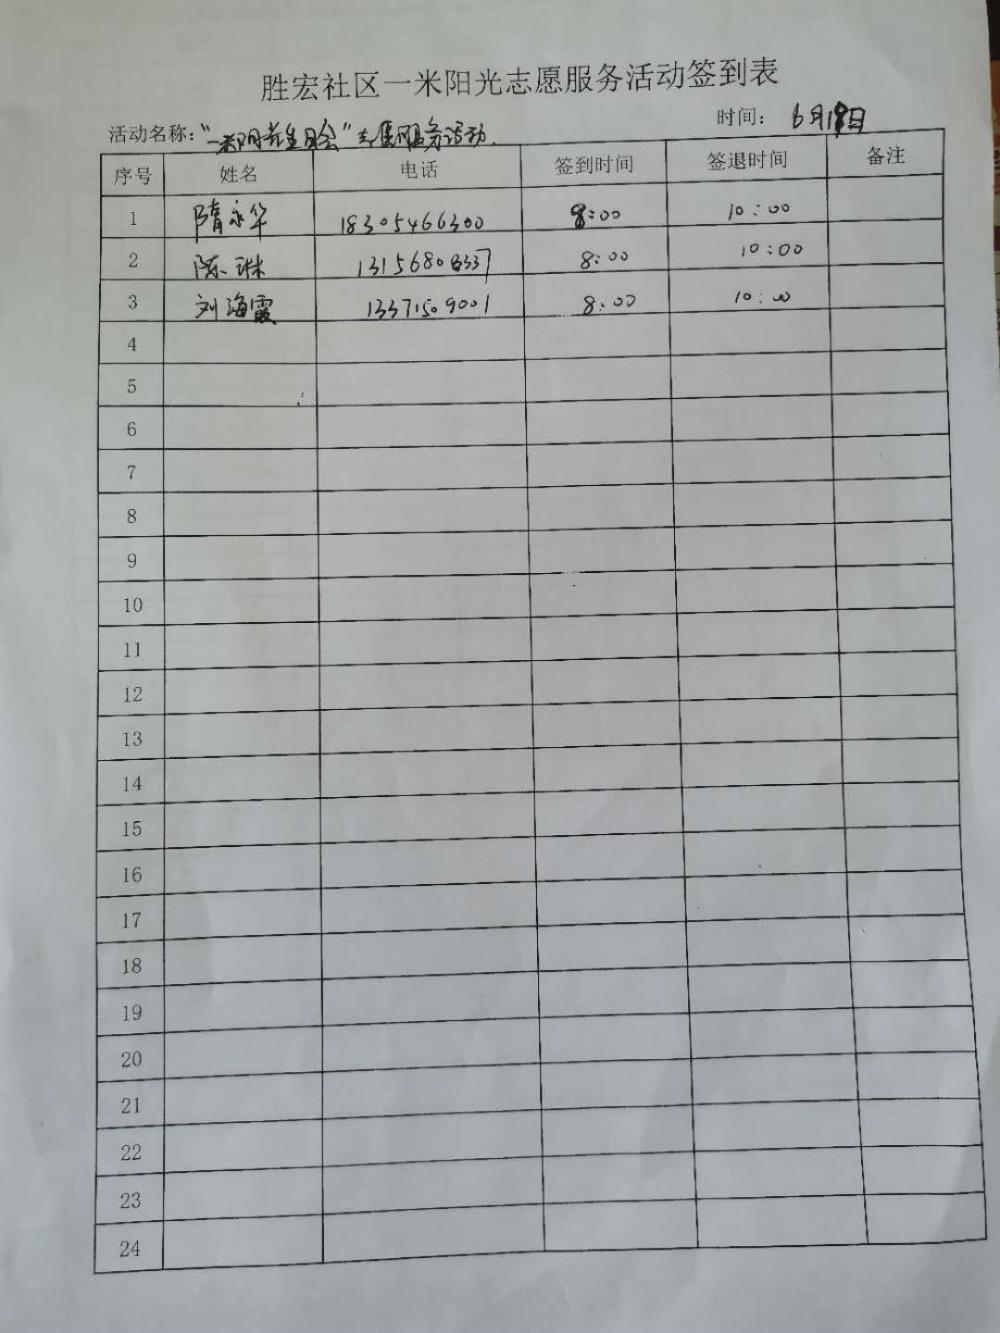 胜宏社区一米阳光志愿服务活动签到表
活动名称：“一米阳光生日会”志愿服务活动.
时间： 6月18日
序号 姓名 电话 签到时间 签退时间 备注
1 隋永华 18305466300 8:00 10:00
2 陈琳 13156808337 8:00 10:00
3 刘海霞 13371509001 8:00 10:00
4
5
6
7
8
9
10
11
12
13
14
15
16
17
18
19
20
21
22
23
24